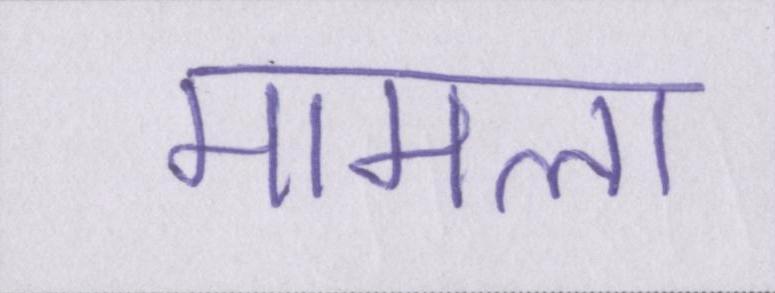 मामला